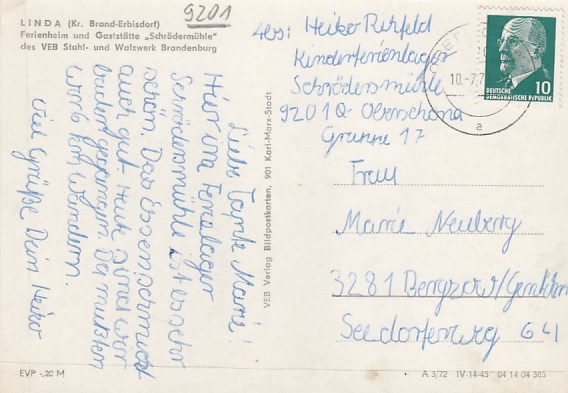 9201
LINDA (Kr. Brand-Erbisdorf)
Ferienheim und Gaststätte „Schrödermühle"
des VEB Stahl- und Walzwerk Brandenburg
Liebe Tante Marie!
Hier im Ferienlager
Schrödersmühle ist es sehr
schön. Das Essen schmeckt
auch gut. Heute sind wir
baden gegangen. Da mußten
wir 6 km wandern.
Viel Grüße Dein Heiko
VEB Verlag Bildpostkarten, 901 Karl-Marx-Stadt
Abs: Heiko Rehfeld
Kinderferienlager
Schrödersmühle
9201 Oberschöna
Gruppe 17
10.-7.7
a
10
DEUTSCHE
DEMOKRATISCHE REPUBLIK
Frau
Marie Neuberg
3281 Bergzow/Genthin
Seedorferweg 64
EVP -,20 M
A 3/72 IV-14-45 04 14 04 385